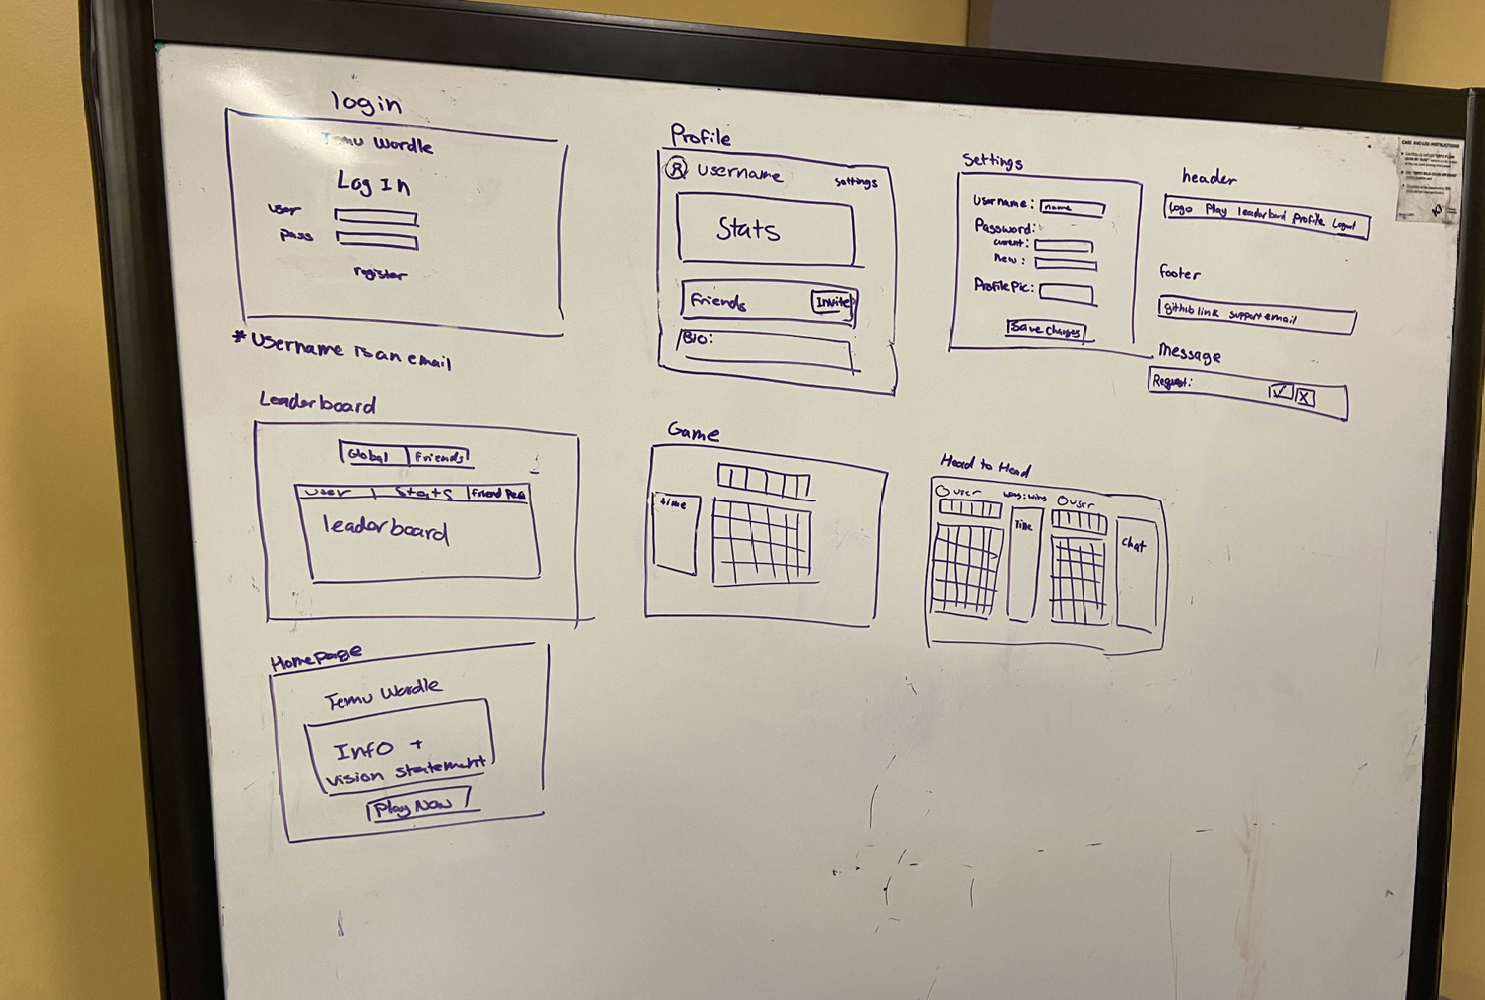 login
Temu Wordle
Log In
user
pass
register
* Username is an email
Profile
Username
settings
Stats
Friends
Invite
Bio:
Settings
Username: name
Password:
current:
new:
Profile Pic:
Save changes
header
Logo Play leaderboard Profile Logout
footer
github link support email
Message
Request:
Leaderboard
Global Friends
user Stats Friend Req
leaderboard
Game
time
Head to Head
user wins:wins user
Time
chat
Homepage
Temu Wordle
Info +
vision statement
Play Now
CARE AND USE INSTRUCTIONS